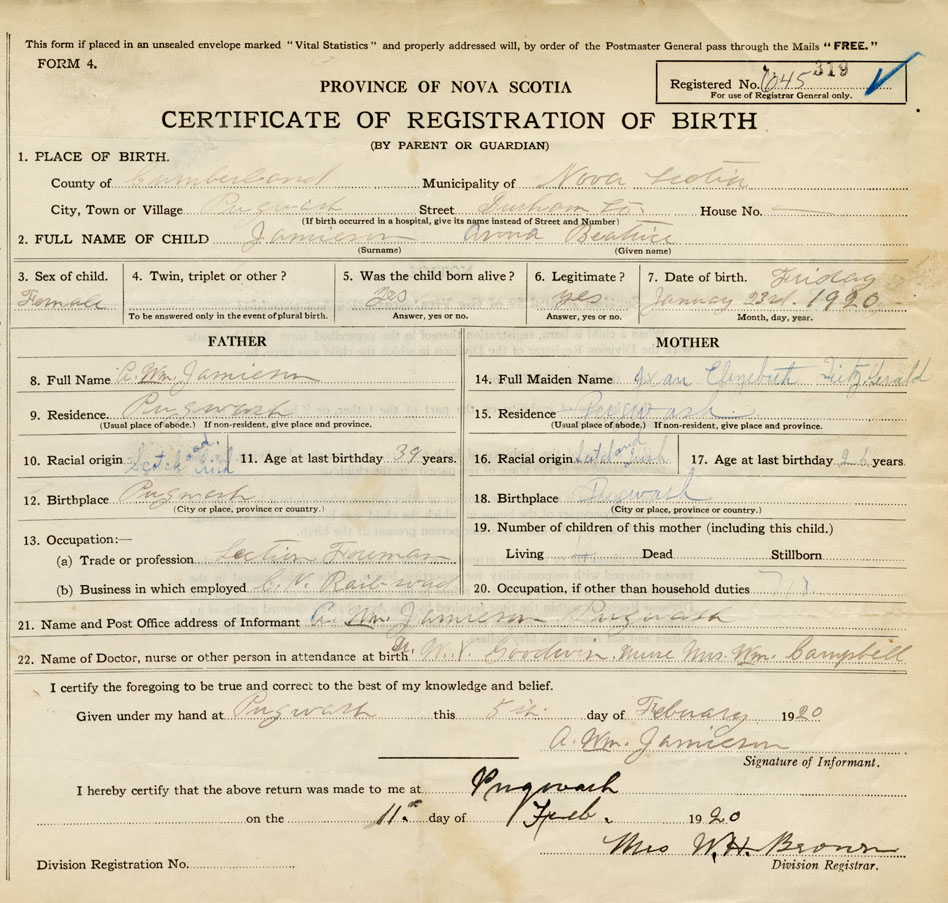 This form if placed in an unsealed envelope marked "Vital Statistics" and properly addressed will, by order of the Postmaster General pass through the Mails "FREE."
FORM 4.
319
Registered No. 645
For use of Registrar General only.
PROVINCE OF NOVA SCOTIA
CERTIFICATE OF REGISTRATION OF BIRTH
(BY PARENT OR GUARDIAN)
1. PLACE OF BIRTH.
County of Cumberland Municipality of Nova Scotia
City, Town or Village Pugwash Street Durham St. House No. —
(If birth occurred in a hospital, give its name instead of Street and Number)
2. FULL NAME OF CHILD Jamieson Anna Beatrice
(Surname) (Given name)
3. Sex of child. 4. Twin, triplet or other? 5. Was the child born alive? 6. Legitimate? 7. Date of birth. Friday
Female yes yes January 23rd. 1920
To be answered only in the event of plural birth. Answer, yes or no. Answer, yes or no. Month, day, year.
FATHER
8. Full Name A. Wm. Jamieson
9. Residence. Pugwash
(Usual place of abode.) If non-resident, give place and province.
10. Racial origin Scotch and Irish 11. Age at last birthday 39 years.
12. Birthplace Pugwash
(City or place, province or country.)
13. Occupation:—
(a) Trade or profession Section Foreman
(b) Business in which employed C. N. Rail-road
MOTHER
14. Full Maiden Name Jean Elizabeth FitzGerald
15. Residence Pugwash
(Usual place of abode.) If non-resident, give place and province.
16. Racial origin Scotch and Irish 17. Age at last birthday 26 years
18. Birthplace Pugwash
(City or place, province or country.)
19. Number of children of this mother (including this child.)
Living Dead Stillborn
20. Occupation, if other than household duties
21. Name and Post Office address of Informant A. Wm. Jamieson Pugwash
22. Name of Doctor, nurse or other person in attendance at birth Dr. Goodwin. Nurse Mrs. Wm. Campbell
I certify the foregoing to be true and correct to the best of my knowledge and belief.
Given under my hand at Pugwash this 5th day of Febuary 1920
A. Wm. Jamieson
Signature of Informant.
I hereby certify that the above return was made to me at Pugwash
on the 11th day of Feb. 1920
Mrs W.H. Brown
Division Registration No. Division Registrar.